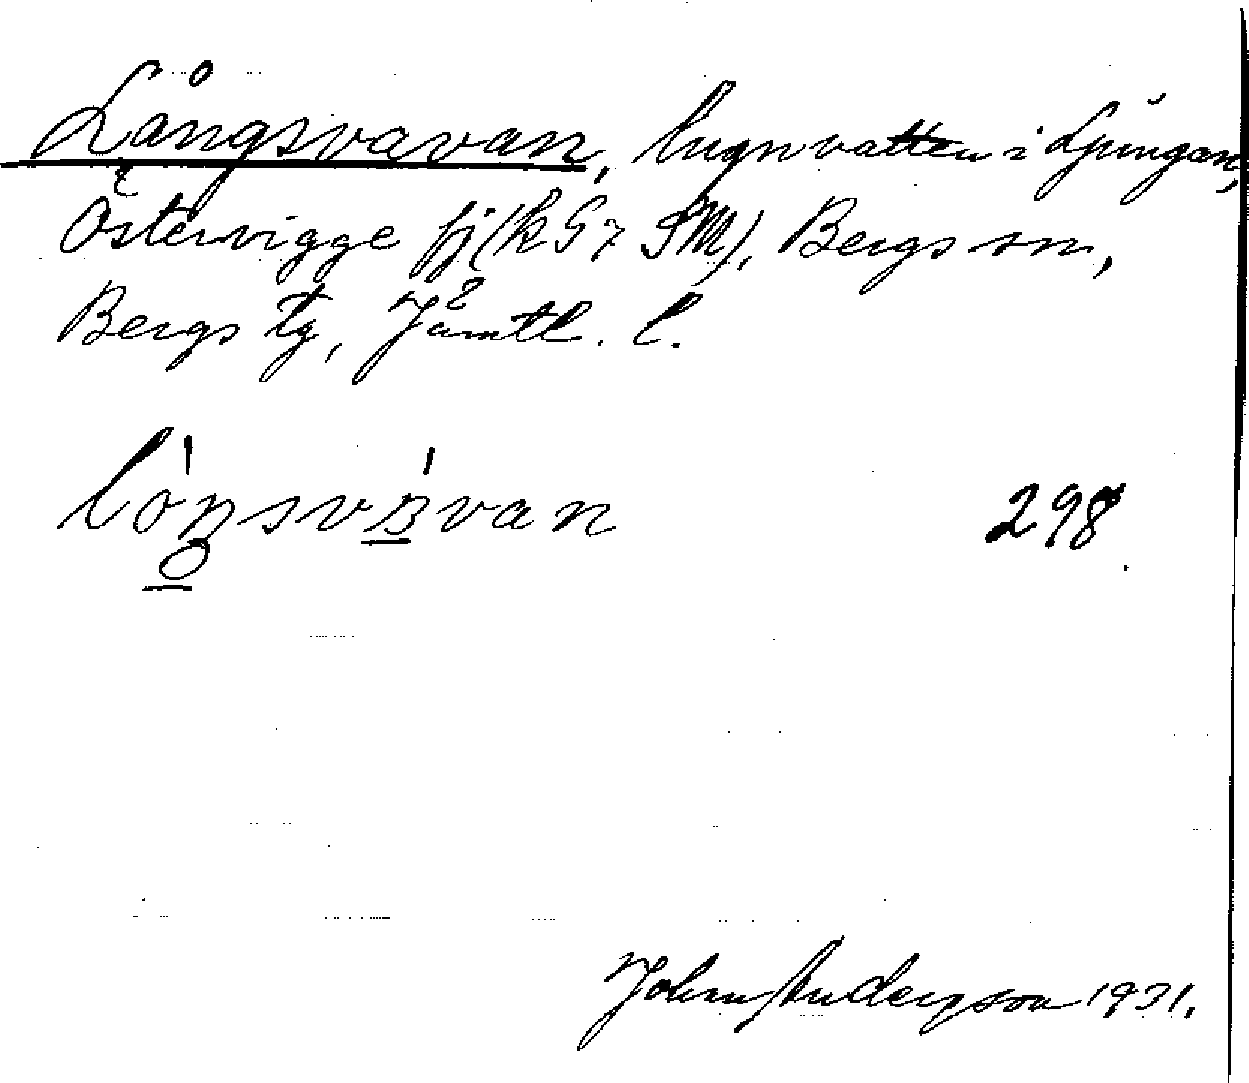 Långsvavan, lugnvatten i Ljungan,
Östervigge fj (k 57 SM), Bergs sn,
Bergs tg, Jämtl. l.
298
John Anderson 1931.